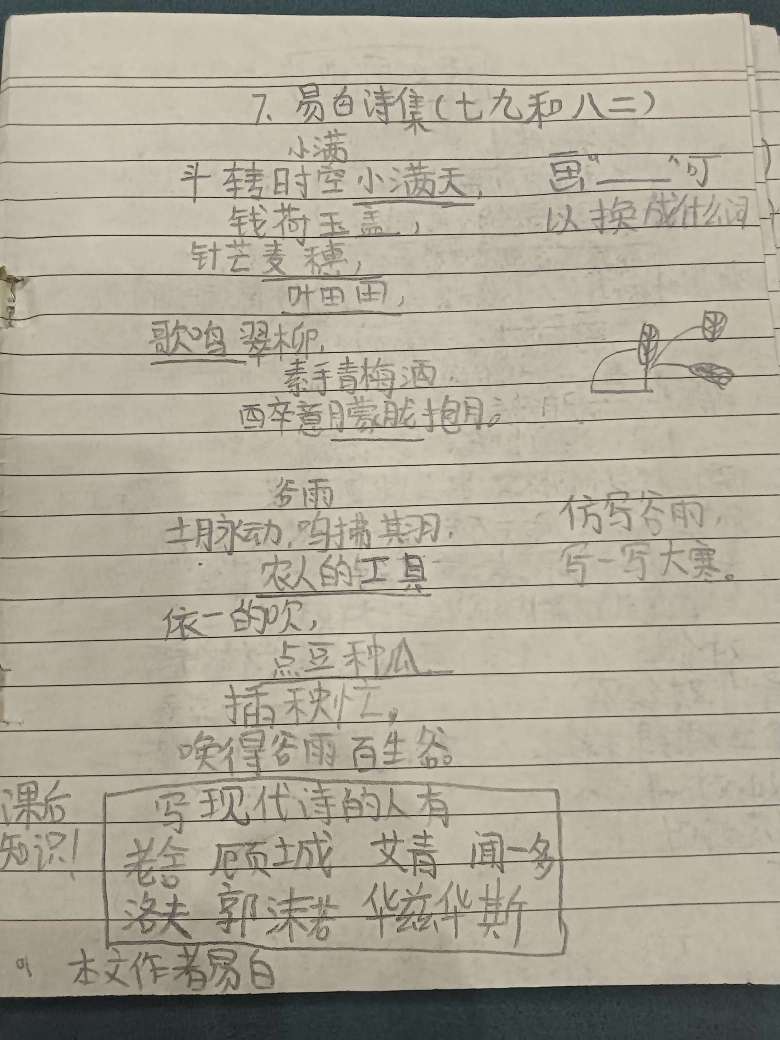 7、易白诗集(七九和八二)
小满
斗转时空小满天，
画“____”可
钱荷玉盖，
以换成什么词
针芒麦穗，
叶田田，
歌鸣翠柳，
素手青梅酒
酉卒意朦胧抱月。
谷雨
土脉动，鸣拂其羽，
仿写谷雨，
农人的工具
写一写大寒。
依一的吹，
点豆种瓜
插秧忙，
唤得谷雨百生谷。
课后
知识！
写现代诗的人有
老舍 顾城 艾青 闻一多
洛夫 郭沫若 华兹华斯
本文作者易白